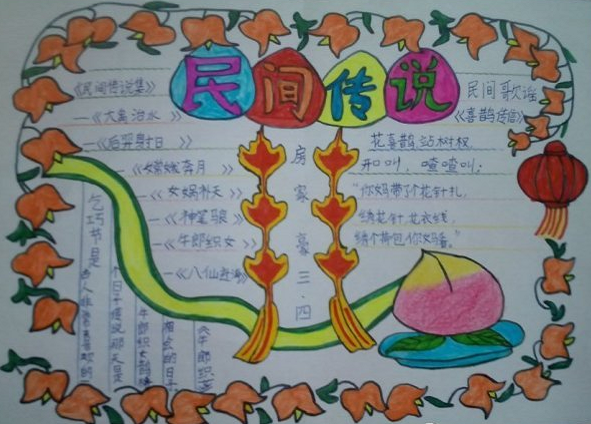 民间传说
《民间传说集》
—《大禹治水》
—《后羿射日》
—《嫦娥奔月》
—《女娲补天》
—《神笔马良》
—《牛郎织女》
—《八仙过海》
房家豪三·四
民间歌谣
《喜鹊传信》
花喜鹊站树杈
开口叫，喳喳叫；
"你妈带了个花针扎，
绣花针，花衣线，
绣个荷包你女婿。"
乞巧节是
个日子传说那天是
牛郎织女鹊桥
相会的日子